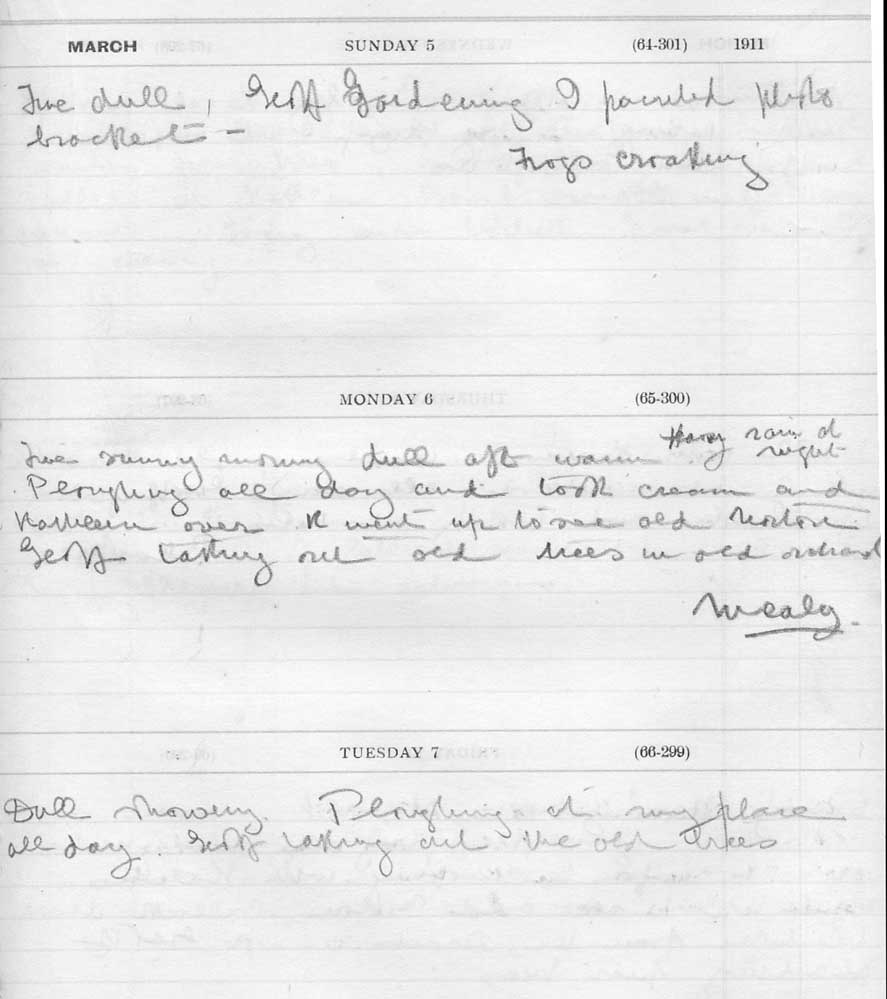 MARCH SUNDAY 5 (64-301) 1911
Fine dull, Geoff Gardening I painted photo
bracket –
Frogs croaking
MONDAY 6 (65-300)
Heavy rain at
Fine sunny morning dull aft warm night
Ploughing all day and took cream and
Kathleen over K went up to see old Norton
Geoff taking out old trees in old orchard
Mealy.
TUESDAY 7 (66-299)
Dull showery. Ploughing at my place
all day. Geoff taking out the old trees